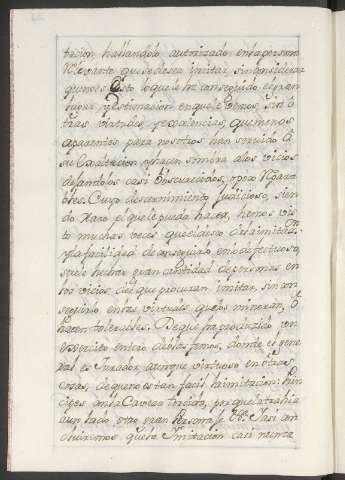 tacion, hallandolo autorizado en la persona
Relevante que desea imitar, sin considerar
que no es esto lo que le ha conseguido el gran
lugar, y estimacion en que le vemos, sino
otras virtudes, y excelencias, que menos
aparentes para nosotros han servido à
su exaltacion, y hacen sombra a los vicios
dejandolos casi obscurecidos, o poco Repara
bles. Cuyo descernimiento judicioso, sien
do Raro el que le pueda hacer, hemos vis
to muchas veces que el deseo de la imitaⁿ
y la facilidad de conseguirlo en lo defectuoso,
suele hechar gran cantidad de personas en
los vicios, del que procuran imitar, sin con
seguirlo en las virtudes que los minoran, ò
hacen tolerables. De que ha producido un
exercito entero de blasfemos, donde el gene
ral es Jurador, aunque virtuoso en otras
cosas, de que no es tan facil la imitacion:
con la Caveza torcida, porque la trahia
a un lado otro gran Persona &c. Y asi con
cluiremos que la Imitacion casi nunca